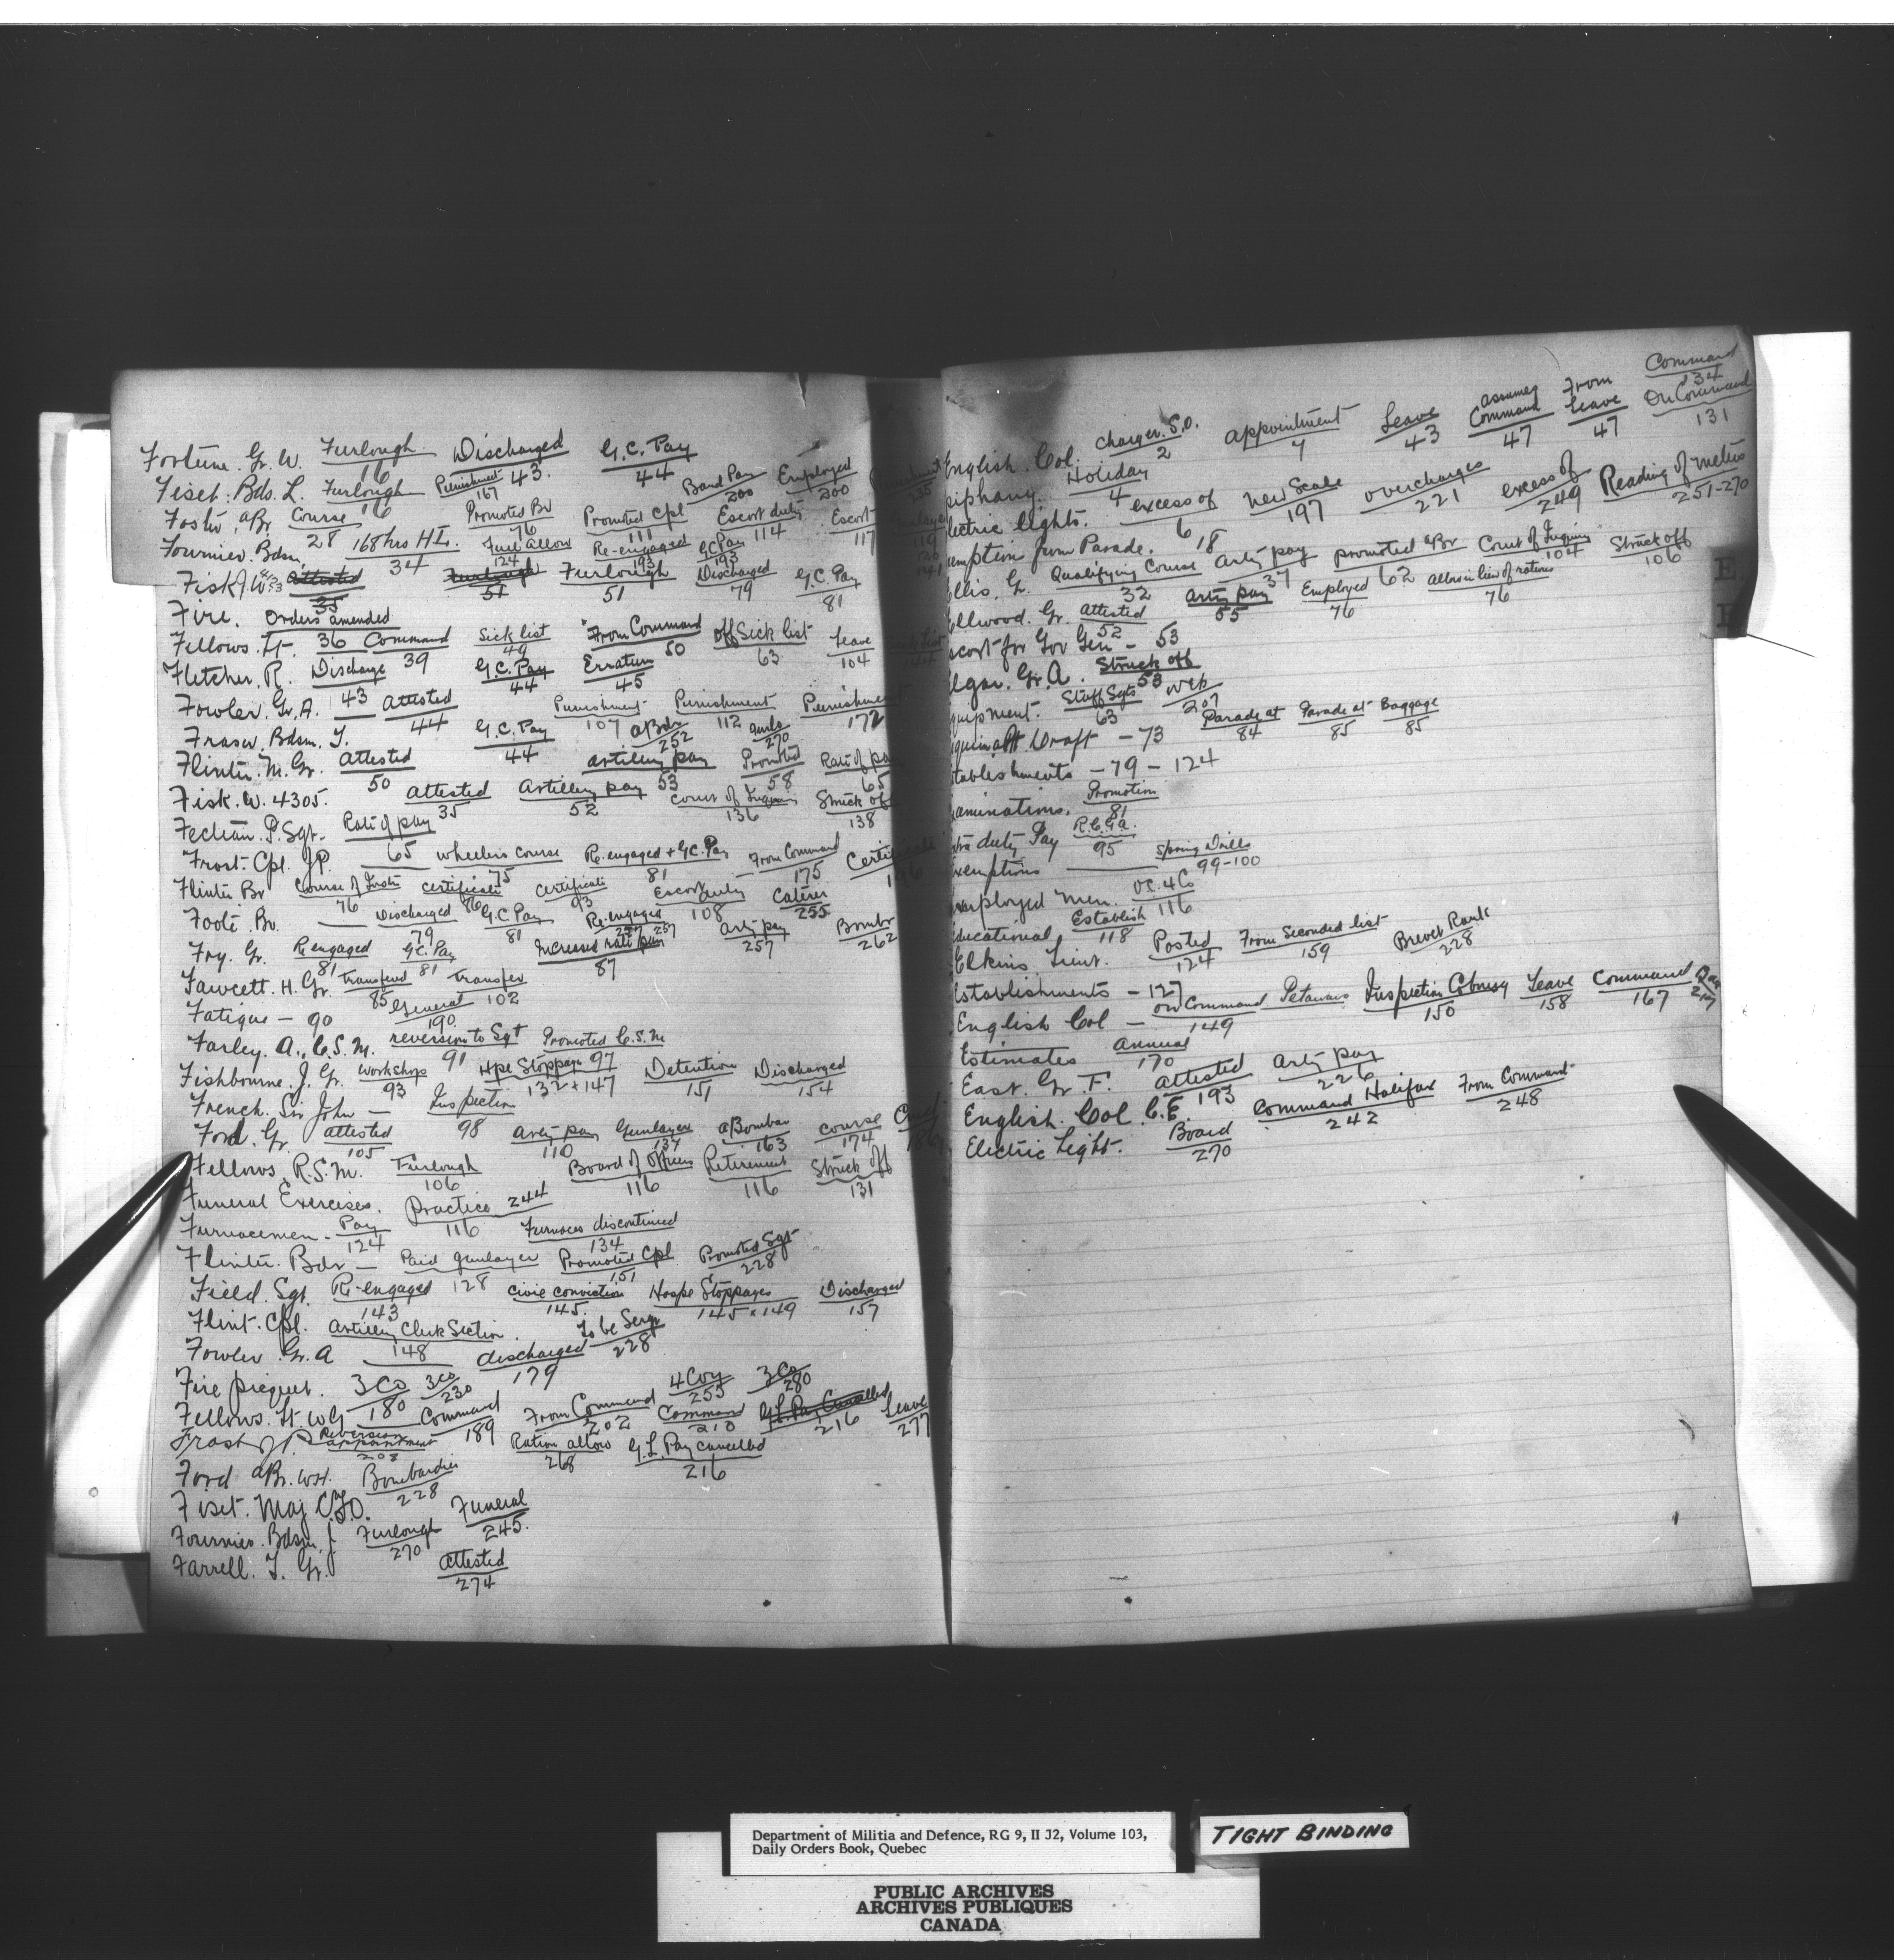 Fortune. Gr. W. Furlough 16 Discharged 43. G.C. Pay 44
Fiset. Bds. L. Furlough 16 Punishment 167 Band Pay 200 Employed 200
Foster, aBr Course 28 Promoted Br 76 Promoted Cpl 111 Escort duty 114 Escort 117
Fournier. Bdsm. 168 hrs H.L. 34 Fuel Allow 124 Re-engaged 193 G.C. Pay 193
Fisk J. W. Attested 35 Furlough 51 Furlough 51 Discharged 79 G.C. Pay 81
Fire. Orders amended 36
Fellows. Lt. Command 39 Sick list 49 From Command 50 off Sick list 63 Leave 104
Fletcher. R. Discharge 43 G.C. Pay 44 Erratum 45
Fowler. Gr. A. Attested 44 Punishment 107 Punishment 112 Punishment 172
Fraser. Bdsm. T. G.C. Pay 44 aBdr 252 Gunlr 270
Flinter. M. Gr. Attested 50 Artillery pay 53 Promoted 58 Rate of pay 65
Fisk. W. 4305. Attested 35 Artillery pay 52 Court of Inquiry 136 Struck off 138
Fectean. P. Sgt. Rate of pay 65
Frost. Cpl. J.P. Wheelers Course 75 Re-engaged + G.C. Pay 81 From Command 175
Flinter Br Course of Instn 76 Certificate 86 Certificate 93 Escort duty 108 Caterer 255
Foote. Br. Discharged 79 G.C. Pay 81 Re-engaged 257 Arty pay 257 Bombr 262
Fry. Gr. Re engaged 81 G.C. Pay 81 Increased rate pay 87
Fawcett. H. Gr. Transferred 85 Transfer 102
Fatigue - 90 General 190
Farley. A., C.S.M. reversion to Sgt 91 Promoted C.S.M. 97
Fishbourne. J. Gr. Workshop 93 Hpe Stoppages 132 + 147 Detention 151 Discharged 154
French. Sir John - Inspection 98
Ford. Gr. attested 105 Arty pay 110 Gunlayer 137 aBombar 163 Course 174
Fellows, R.S.M. Furlough 106 Board of Officers 116 Retirement 116 Struck off 131
Funeral Exercises. Practice 116 244
Furnacemen - Pay 124 Furnaces discontinued 134
Flinter. Bdr - Paid gunlayer 128 Promoted Cpl 151 Promoted Sgt 228
Field. Sgt. Re-engaged 143 Civic conviction 145. Hospe Stoppages 145 x 149 Discharged 157
Flint. Cpl. Artillery Clerk Section. 148 To be Sergt 228
Fowler. Gr. A discharged 179
Fire piequet. 3 Co 180 3 Co 230 4 Coy 255 3 Co 280
Fellows. Lt. W G Command 189 From Command 202 Command 210 G.L. Pay Cancelled 216 Leave 277
Frost J P. Reversion appointment 208 Ration allow 268 G.L. Pay cancelled 216
Ford aBr. W.H. Bombardier 228
Fiset. Maj C.Y.O. Funeral 245.
Fournier. Bdsm. J. Furlough 270
Farrell. T. Gr. Attested 274
English. Col. Charger. S.O. 2 Appointment 7 Leave 43 Assumes Command 47 From Leave 47 Command 134 On Command 131
piphany. Holiday 4
lectric Lights. excess of 6 New Scale 197 Overcharges 221 excess of 249 Reading of meters 251-270
emption from Parade. 18
llis. Gr. Qualifying Course 32 Arty pay 37 promoted aBr 62 Court of Inquiry 104 Struck off 106
llwood. Gr. Attested 52 Arty pay 55 Employed 76 Allce in lieu of rations 76
scort for Gov Gen - 53
lgar. Gr. A. Struck off 53
quipment. Staff Sgts 63 Web 207
squimalt Draft - 73 Parade at 84 Parade at 85 Baggage 85
tablishments - 79 - 124
aminations. Promotion 81
tra duty Pay R.C.G.A. 95
xemptions Spring Drills 99-100
mployed Men. O.C. 4 Co 116
ducational Establish 118
Elkins. Lieut. Posted 124 From Seconded list 159 Brevet Rank 228
Establishments - 127
English Col - On Command Petawawa 149 Inspection Cobourg 150 Leave 158 Command 167
Estimates Annual 170
East. Gr. F. Attested 193 Arty pay 226
English. Col. C.E. Command Halifax 242 From Command 248
Electric Light. Board 270
E
F
Department of Militia and Defence, RG 9, II J2, Volume 103,
Daily Orders Book, Quebec
TIGHT BINDING
PUBLIC ARCHIVES
ARCHIVES PUBLIQUES
CANADA